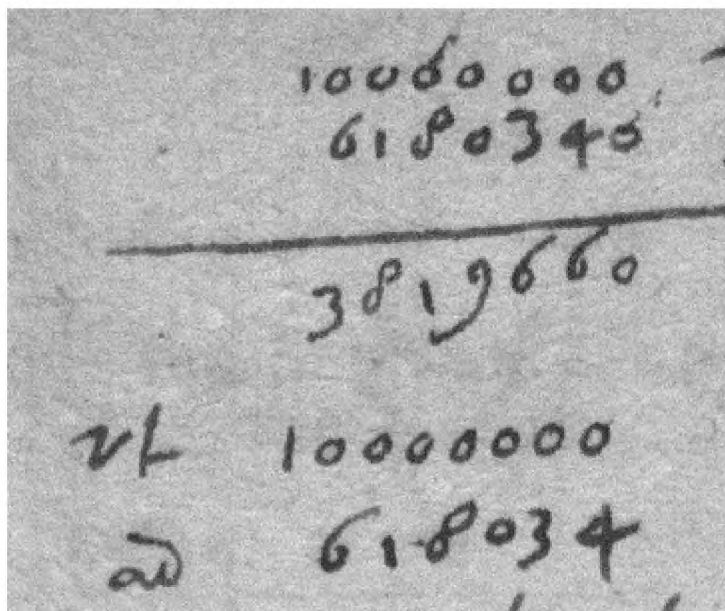 10000000
6180340
3819660
10000000
618034